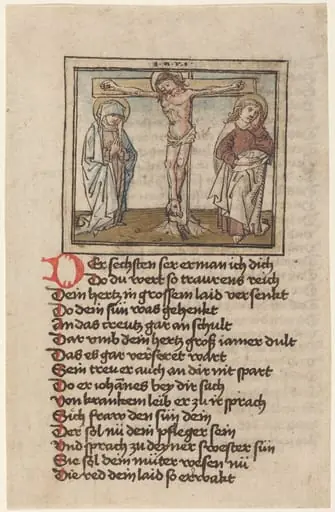 I N R I
Der sechsten ser erman ich dich
Do du wert so traurens reich
Dein hertz in grossem laid versenkt
Do dein sun was gehenkt
An das creutz gar an schult
Dar vmb dein hertz groß iamer dult
Das es gar verseret wart
Sein treu er auch an dir nit spart
Do er iohānes bey dir sach
Von krankem leib er zu ir sprach
Sich fraw den sun dein
Der sol nu dein pfleger sein
Vnd sprach zu deyner swester sun
Sie sol dein muter wesen nu
Die red dein laid so erwakt